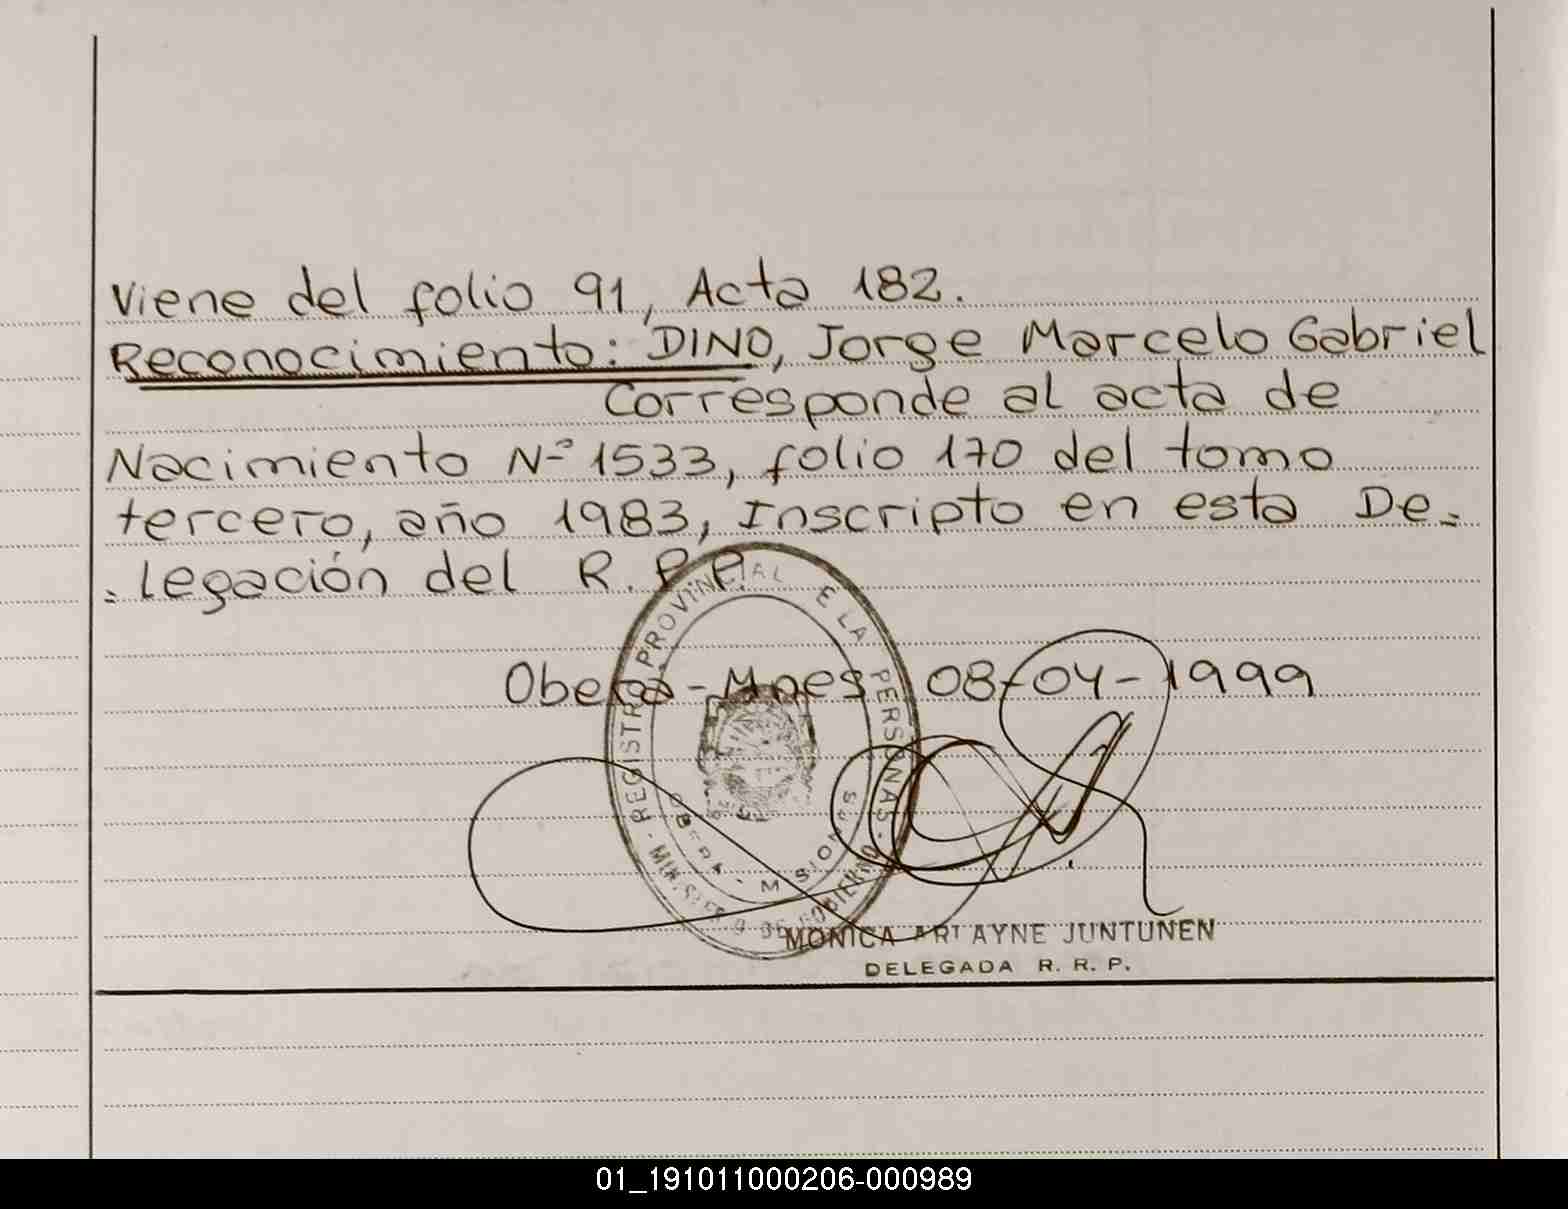 Viene del folio 91, Acta 182.
Reconocimiento: DINO, Jorge Marcelo Gabriel
Corresponde al acta de
Nacimiento Nº 1533, folio 170 del tomo
tercero, año 1983, Inscripto en esta De=
=legación del R.P.P.
Oberá-Mnes 08-04-1999
REGISTRO PROVINCIAL DE LA PERSONAS
MINISTERIO DE GOBIERNO
OBERA - MISIONES
MONICA ARLAYNE JUNTUNEN
DELEGADA R. R. P.
01_191011000206-000989